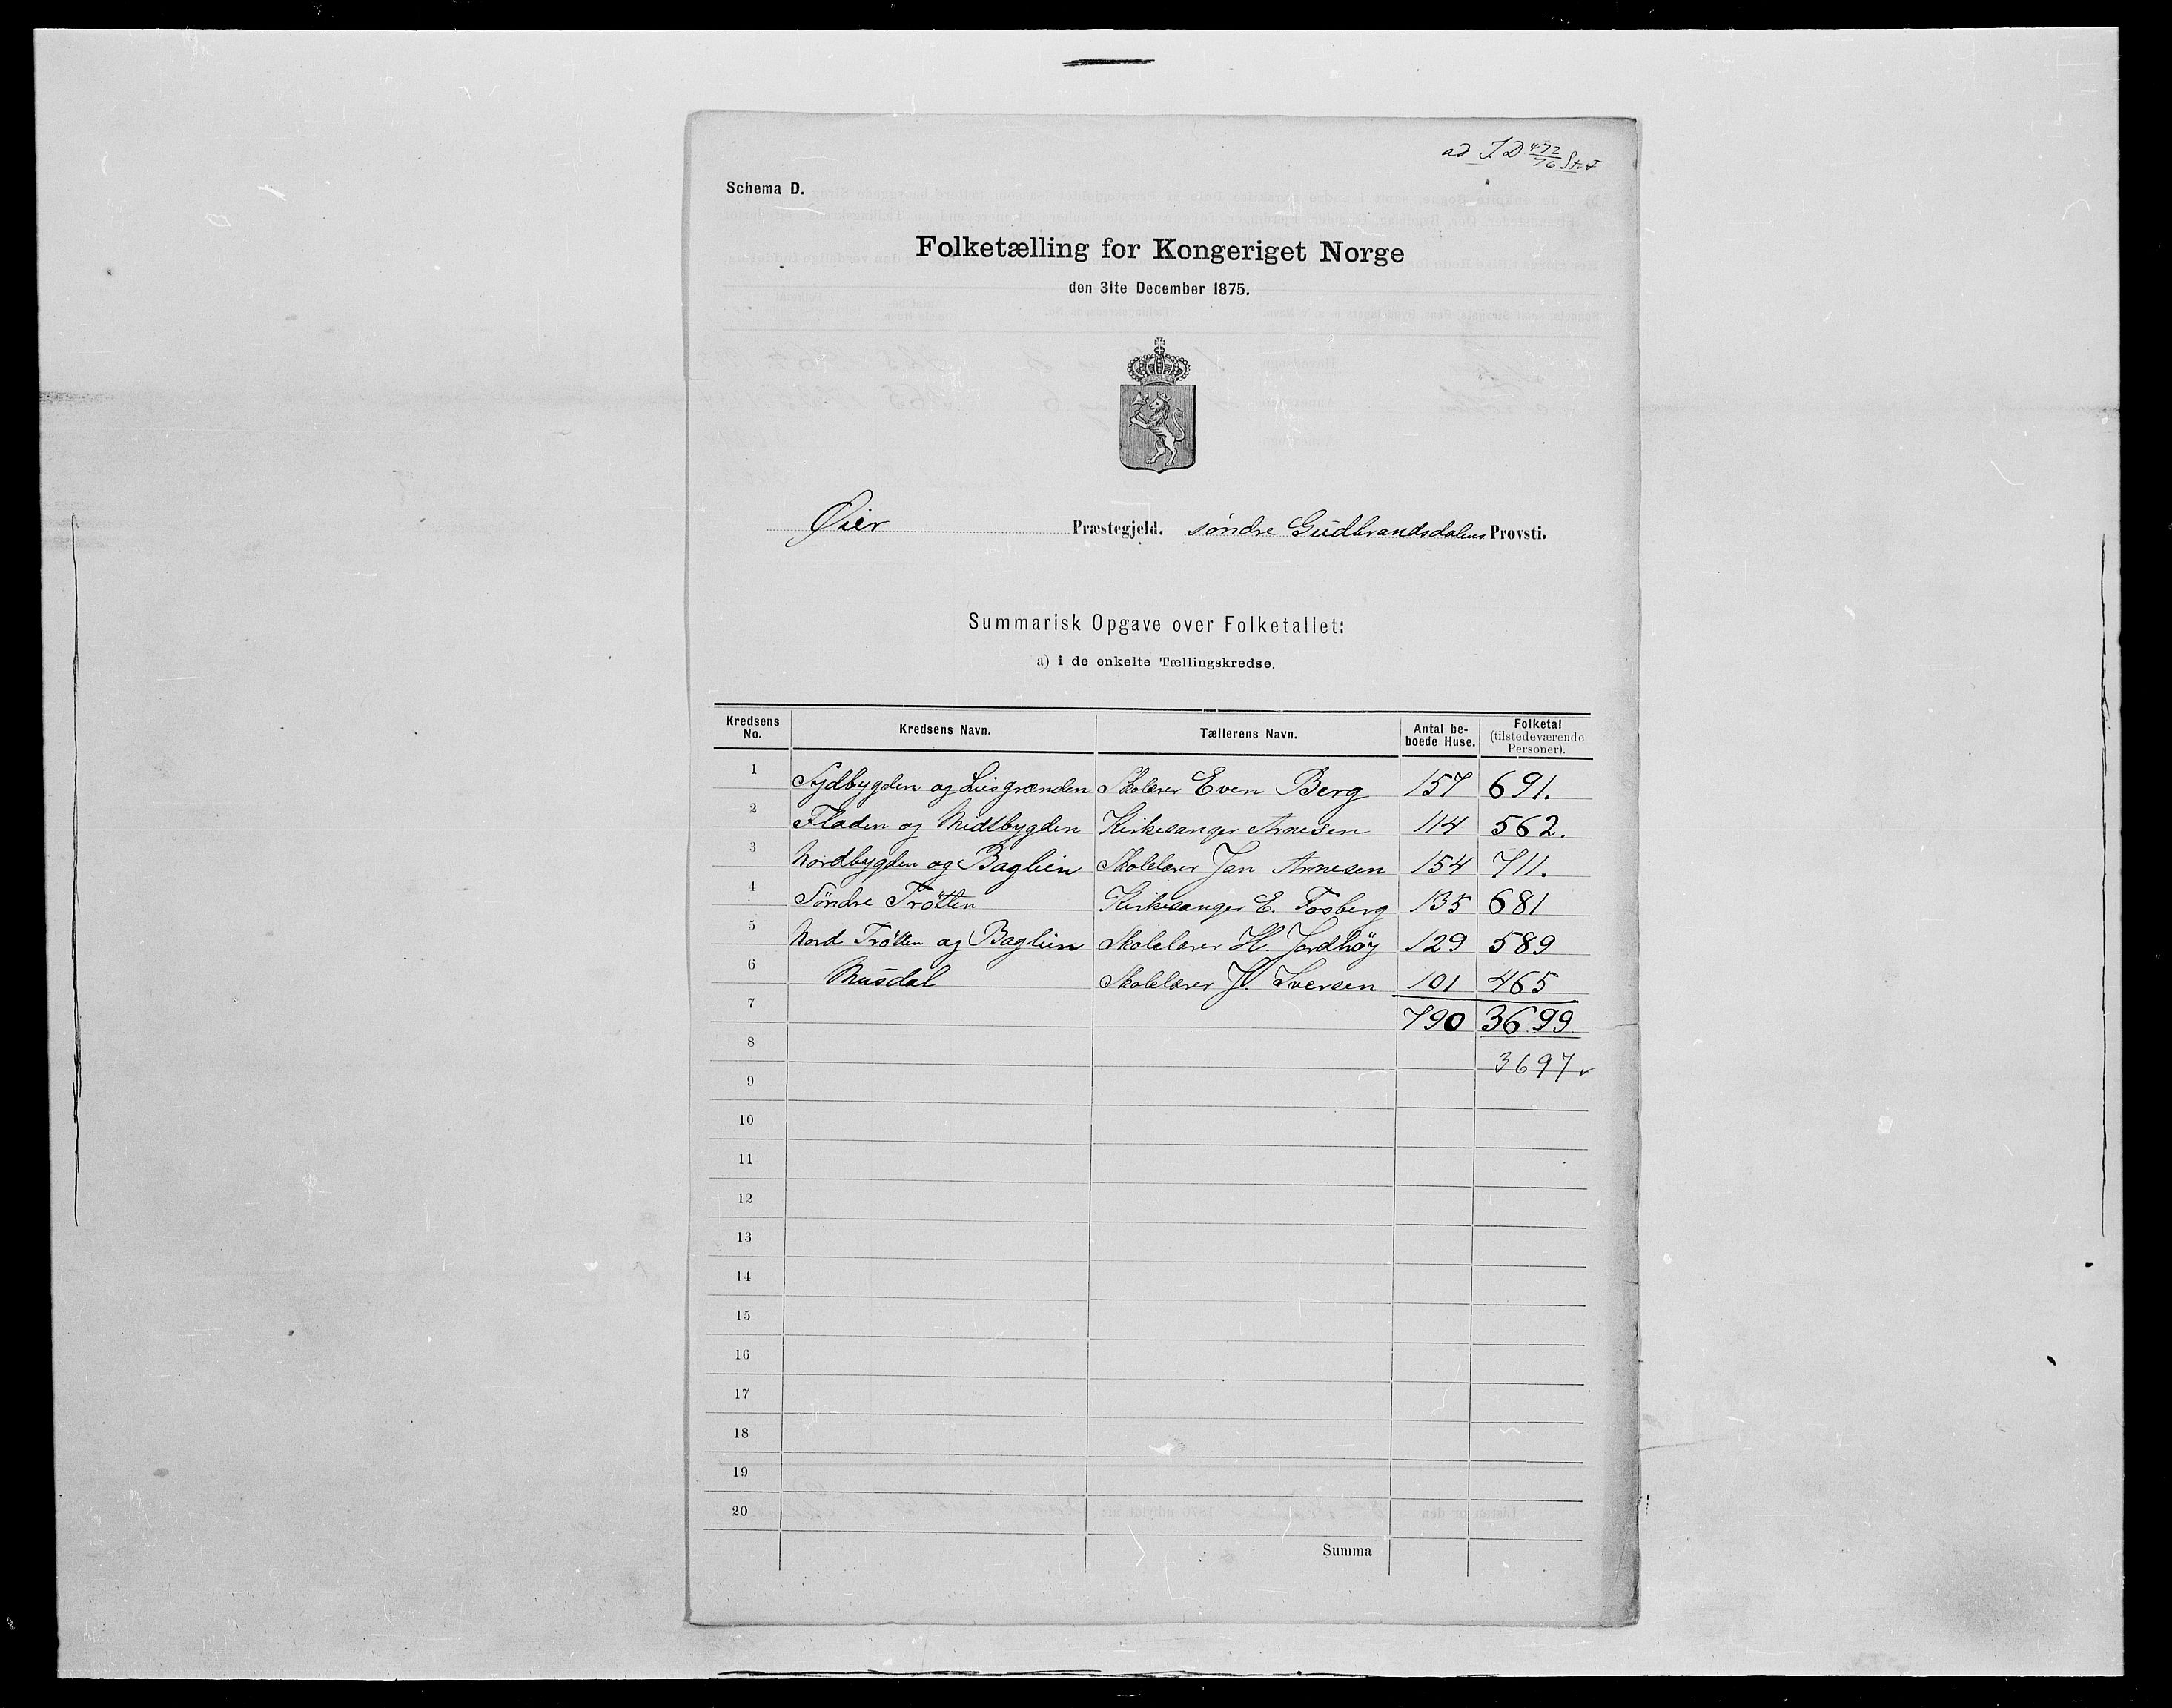 ad I D 492/76 St. F
Schema D.
Folketælling for Kongeriget Norge
den 31te December 1875.
Øier Præstegjeld. søndre Gudbrandsdalens Provsti.
Summarisk Opgave over Folketallet:
a) i de enkelte Tællingskredse.
Kredsens No. Kredsens Navn. Tællerens Navn. Antal beboede Huse. Folketal (tilstedeværende Personer).
1 Sydbygden og Liesgrænden Skolærer Even Berg 157 691.
2 Fladen og Midtbygden Kirkesanger Arnesen 114 562.
3 Nordbygden og Baglien Skolelærer Jan Arnesen 154 711.
4 Søndre Trötten Kirkesanger E. Fosberg 135 681
5 Nord Trötten og Baglien Skolelærer H. Jordhöy 129 589
6 Musdal Skolelærer J. Iversen 101 465
7 790 3699
8 3697
9
10
11
12
13
14
15
16
17
18
19
20
Summa